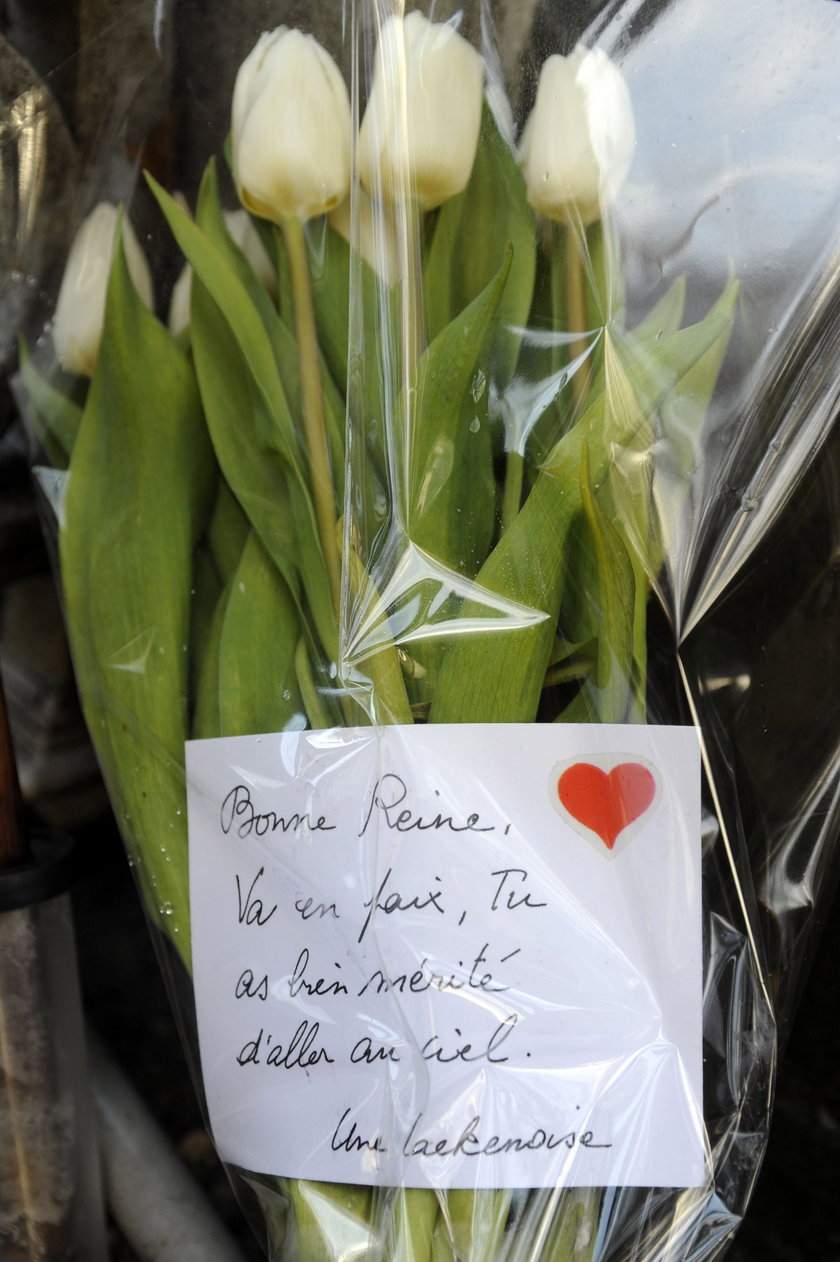 Bonne Reine,
Va en paix, Tu
as bien mérité
d'aller au ciel.
Une laekenoise